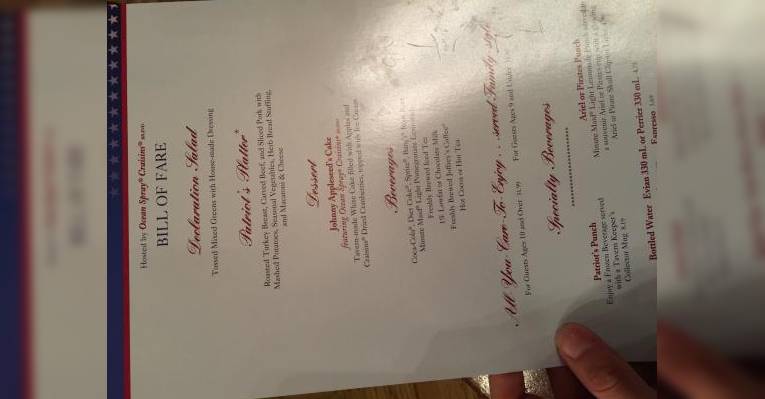 Hosted by Ocean Spray® Craisins® BRAND
BILL OF FARE
Declaration Salad
Tossed Mixed Greens with House-made Dressing
Patriot's Platter*
Roasted Turkey Breast, Carved Beef, and Sliced Pork with
Mashed Potatoes, Seasonal Vegetables, Herb Bread Stuffing,
and Macaroni & Cheese
Dessert
Johnny Appleseed's Cake
featuring Ocean Spray® Craisins® BRAND
Tavern-made White Cake filled with Apples and
Craisins® Dried Cranberries, topped with Ice Cream
Beverages
Coca-Cola®, Diet Coke®, Sprite®,
Minute Maid® Light Pomegranate Lemonade
Freshly Brewed Iced Tea
1% Lowfat or Chocolate Milk
Freshly Brewed Joffrey's Coffee®
Hot Cocoa or Hot Tea
All You Care To Enjoy . . . served Family style
For Guests Ages 10 and Over
For Guests Ages 9 and Under
Specialty Beverages
Patriot's Punch
Enjoy a Frozen Beverage served
with a Tavern Keeper's
Collector Mug 8.19
Ariel or Pirates Punch
Minute Maid® Light Lemonade Punch served in
a souvenir Ariel or Pirates cup with a glowing
Ariel or Pirate Skull Clip-on Light
Bottled Water Evian 330 ml. or Perrier 330 mL
Espresso